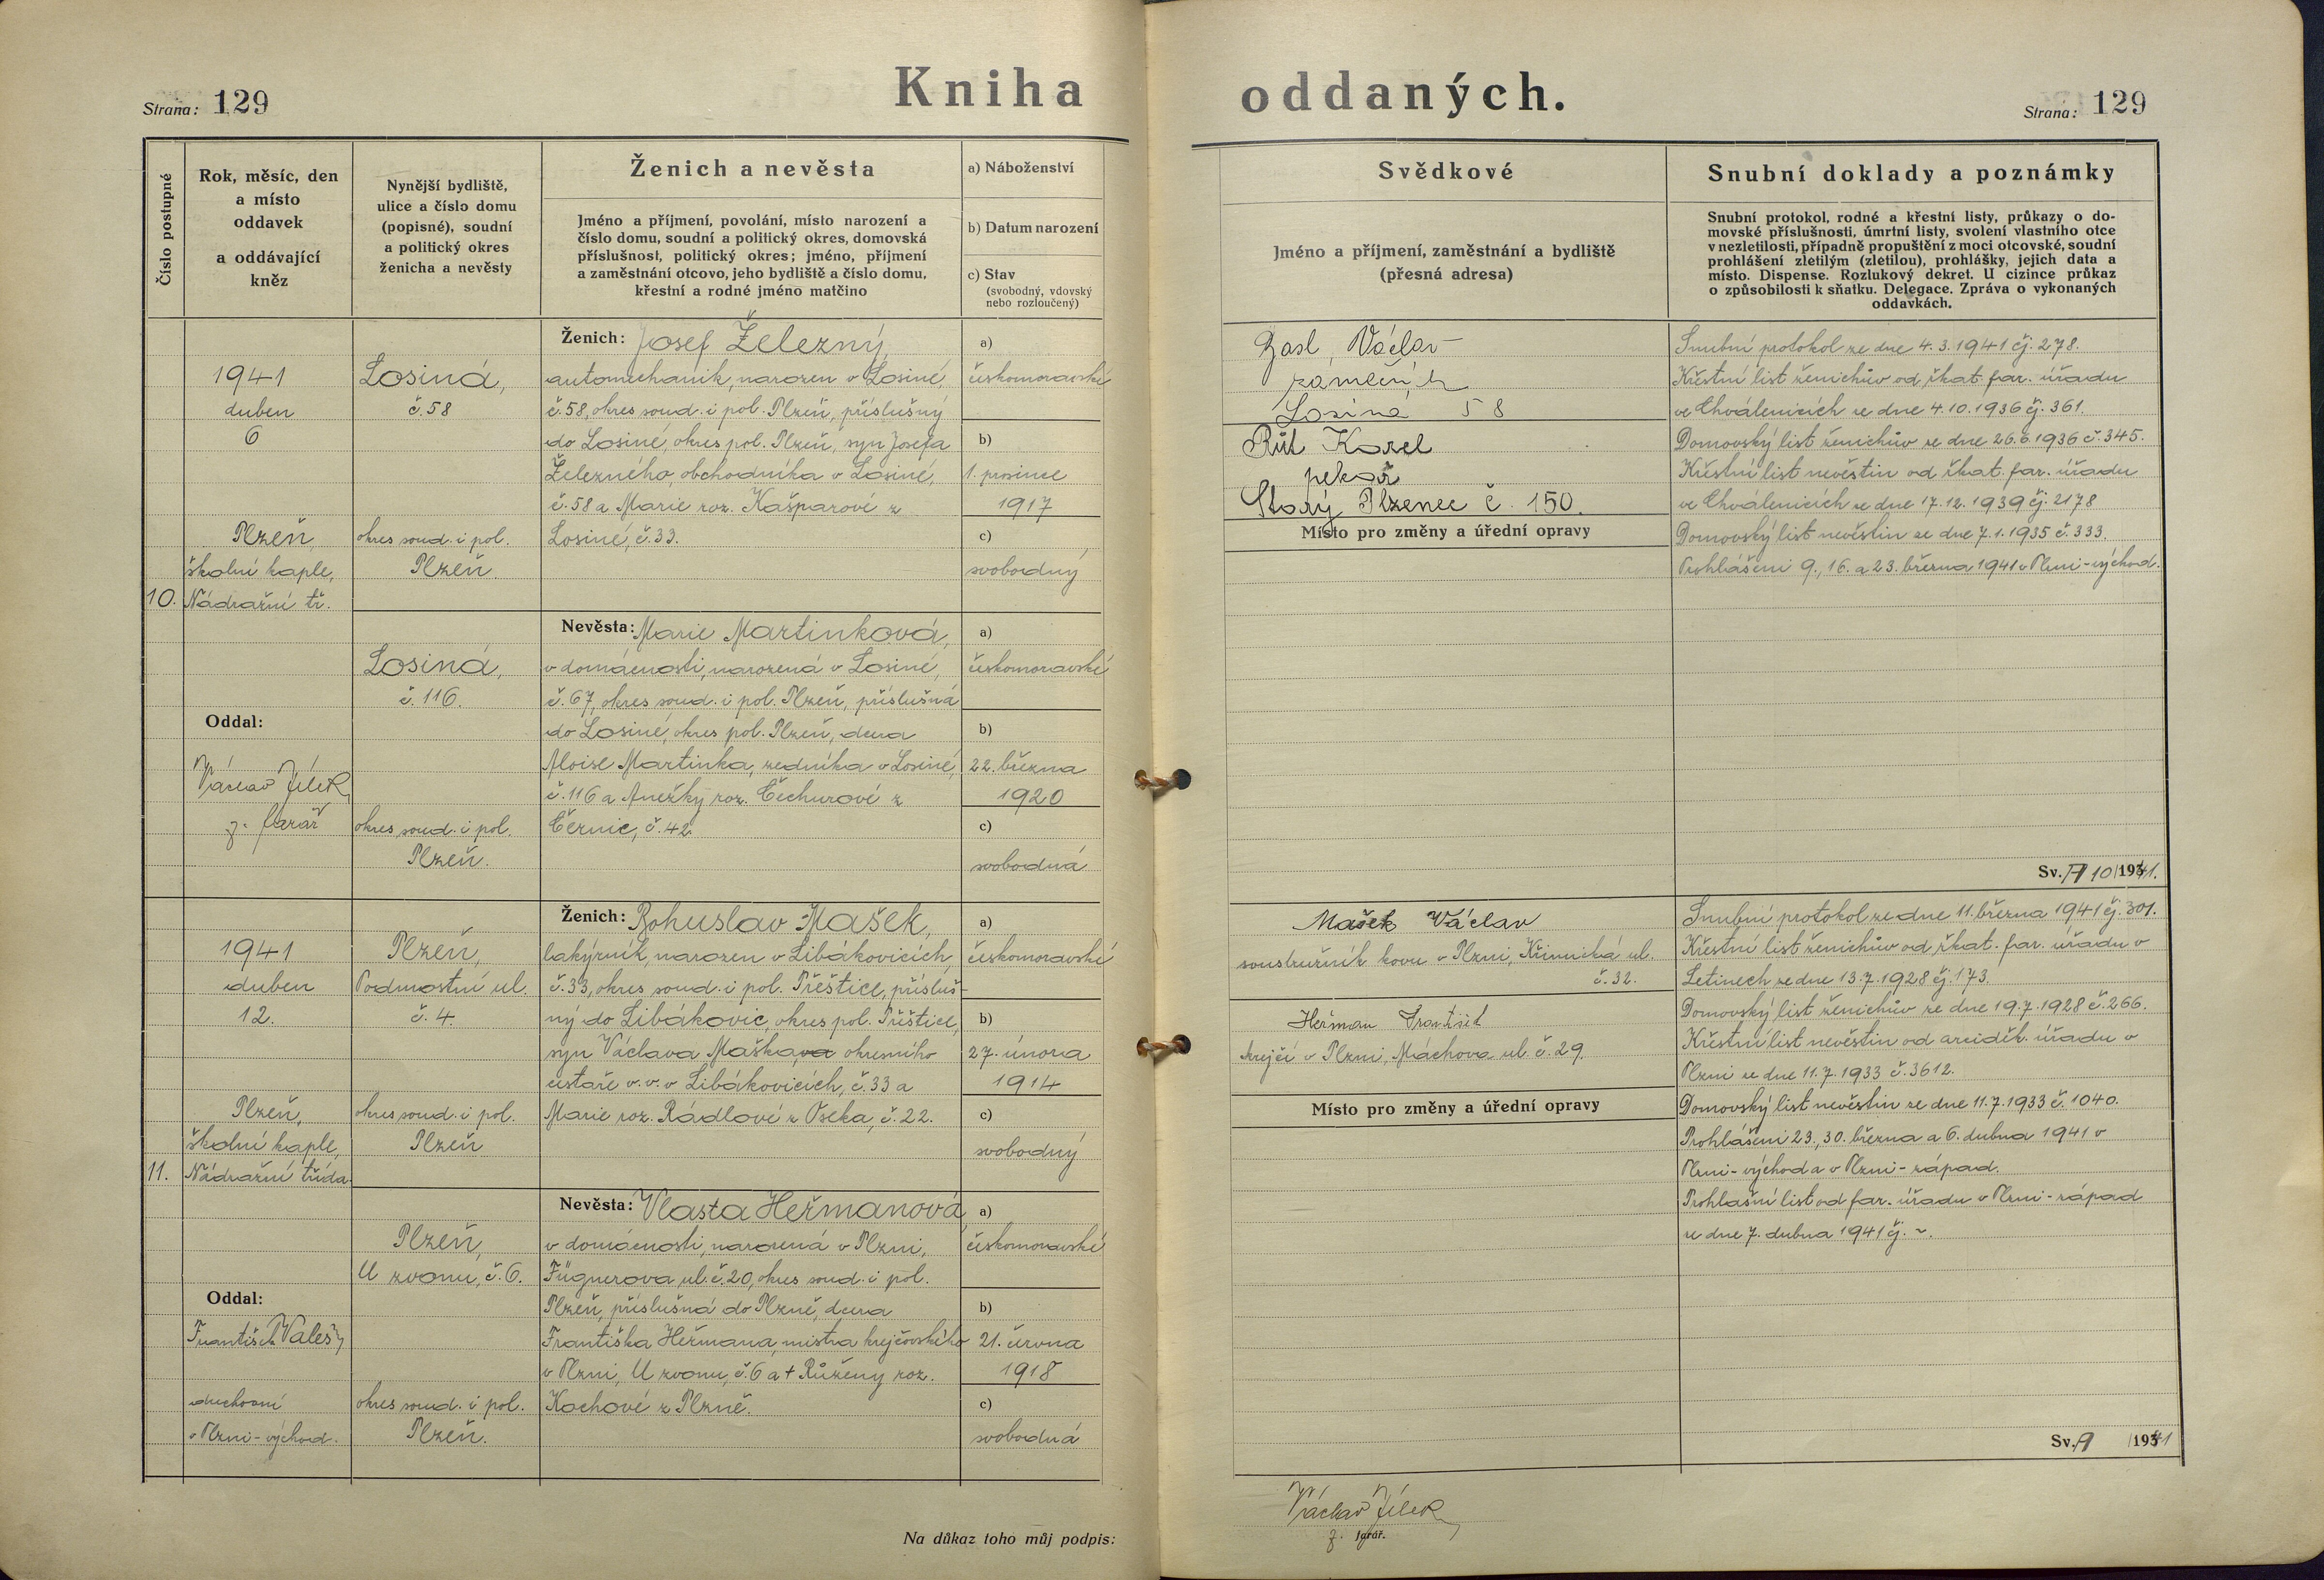 Kniha oddaných.
Strana: 129
Strana: 129
Číslo postupné
Rok, měsíc, den
a místo
oddavek
a oddávající
kněz
Nynější bydliště,
ulice a číslo domu
(popisné), soudní
a politický okres
ženicha a nevěsty
Ženich a nevěsta
Jméno a příjmení, povolání, místo narození a
číslo domu, soudní a politický okres, domovská
příslušnost, politický okres; jméno, příjmení
a zaměstnání otcovo, jeho bydliště a číslo domu,
křestní a rodné jméno matčino
a) Náboženství
b) Datum narození
c) Stav
(svobodný, vdovský
nebo rozloučený)
Svědkové
Jméno a příjmení, zaměstnání a bydliště
(přesná adresa)
Snubní doklady a poznámky
Snubní protokol, rodné a křestní listy, průkazy o do-
movské příslušnosti, úmrtní listy, svolení vlastního otce
v nezletilosti, případně propuštění z moci otcovské, soudní
prohlášení zletilým (zletilou), prohlášky, jejich data a
místo. Dispense. Rozlukový dekret. U cizince průkaz
o způsobilosti k sňatku. Delegace. Zpráva o vykonaných
oddavkách.
10.
1941
duben
6
Plzeň,
školní kaple,
Nádražní tř.
Oddal:
Václav Jílek
z. farář
Losiná,
č. 58
okres soud. i pol.
Plzeň.
Ženich: Josef Železný,
automechanik, narozen v Losiné,
č. 58, okres soud. i pol. Plzeň, příslušný
do Losiné, okres pol. Plzeň, syn Josefa
Železného, obchodníka v Losiné,
č. 58 a Marie roz. Kašparové z
Losiné, č. 33.
a)
českomoravské
b)
1. prosince
1917
c)
svobodný
Losiná,
č. 116.
okres soud. i pol.
Plzeň.
Nevěsta: Marie Martinková,
v domácnosti, narozená v Losiné,
č. 67, okres soud. i pol. Plzeň, příslušná
do Losiné, okres pol. Plzeň, dcera
Aloise Martinka, zedníka v Losiné,
č. 116 a Anežky roz. Čechurové z
Černic, č. 42.
a)
českomoravské
b)
22. března
1920
c)
svobodná
Václav
zámečník
Losiná 58
Karel
pekař
Starý Plzenec č. 150.
Místo pro změny a úřední opravy
Snubní protokol ze dne 4. 3. 1941 čj. 278.
Křestní list ženichův od řkat. far. úřadu
ve Chválenicích ze dne 4. 10. 1936 čj. 361.
Domovský list ženichův ze dne 26. 6. 1936 č. 345.
Křestní list nevěstin od řkat. far. úřadu
ve Chválenicích ze dne 17. 12. 1939 čj. 2178
Domovský list nevěstin ze dne 7. 1. 1935 č. 333.
Prohlášeni 9., 16. a 23. března 1941 v Plzni-východ.
Sv. A 10/1941.
11.
1941
duben
12.
Plzeň,
školní kaple,
Nádražní třída
Oddal:
František Valeš,
duchovní
v Plzni-východ.
Plzeň,
Podmostní ul.
č. 4.
okres soud. i pol.
Plzeň
Ženich: Bohuslav Mašek,
lakýrník, narozen v Libákovicích
č. 33, okres soud. i pol. Přeštice, přísluš-
ný do Libákovic, okres pol. Přeštice,
syn Václava Maška okresního
cestáře v. v. v Libákovicích, č. 33 a
Marie roz. Rádlové z Oseka, č. 22.
a)
českomoravské
b)
27. února
1914
c)
svobodný
Plzeň,
U zvonu, č. 6.
okres soud. i pol.
Plzeň.
Nevěsta: Vlasta Heřmanová
v domácnosti, narozená v Plzni,
Fügnerova ul. č. 20, okres soud. i pol.
Plzeň, příslušná do Plzně, dcera
Františka Heřmana, mistra krejčovského
v Plzni, U zvonu, č. 6 a † Růženy roz.
Kochové z Plzně.
a)
českomoravské
b)
21. června
1918
c)
svobodná
Mašek Václav
soustružník kovu v Plzni, Křimická ul.
č. 32.
Heřman František
krejčí v Plzni, Máchova ul. č. 29.
Místo pro změny a úřední opravy
Snubní protokol ze dne 11. března 1941 čj. 301.
Křestní list ženichův od řkat. far. úřadu v
Letinech ze dne 13. 7. 1928 čj. 173.
Domovský list ženichův ze dne 19. 7. 1928 č. 266.
Křestní list nevěstin od arciděk. úřadu v
Plzni ze dne 11. 7. 1933 č. 3612.
Domovský list nevěstin ze dne 11. 7. 1933 č. 1040.
Prohlášeni 23., 30. března a 6. dubna 1941 v
Plzni-východ a v Plzni-západ.
Prohlašní list od far. úřadu v Plzni-západ
ze dne 7. dubna 1941 čj. ~.
Sv. A /1941
Na důkaz toho můj podpis:
Václav Jílek
z. farář.